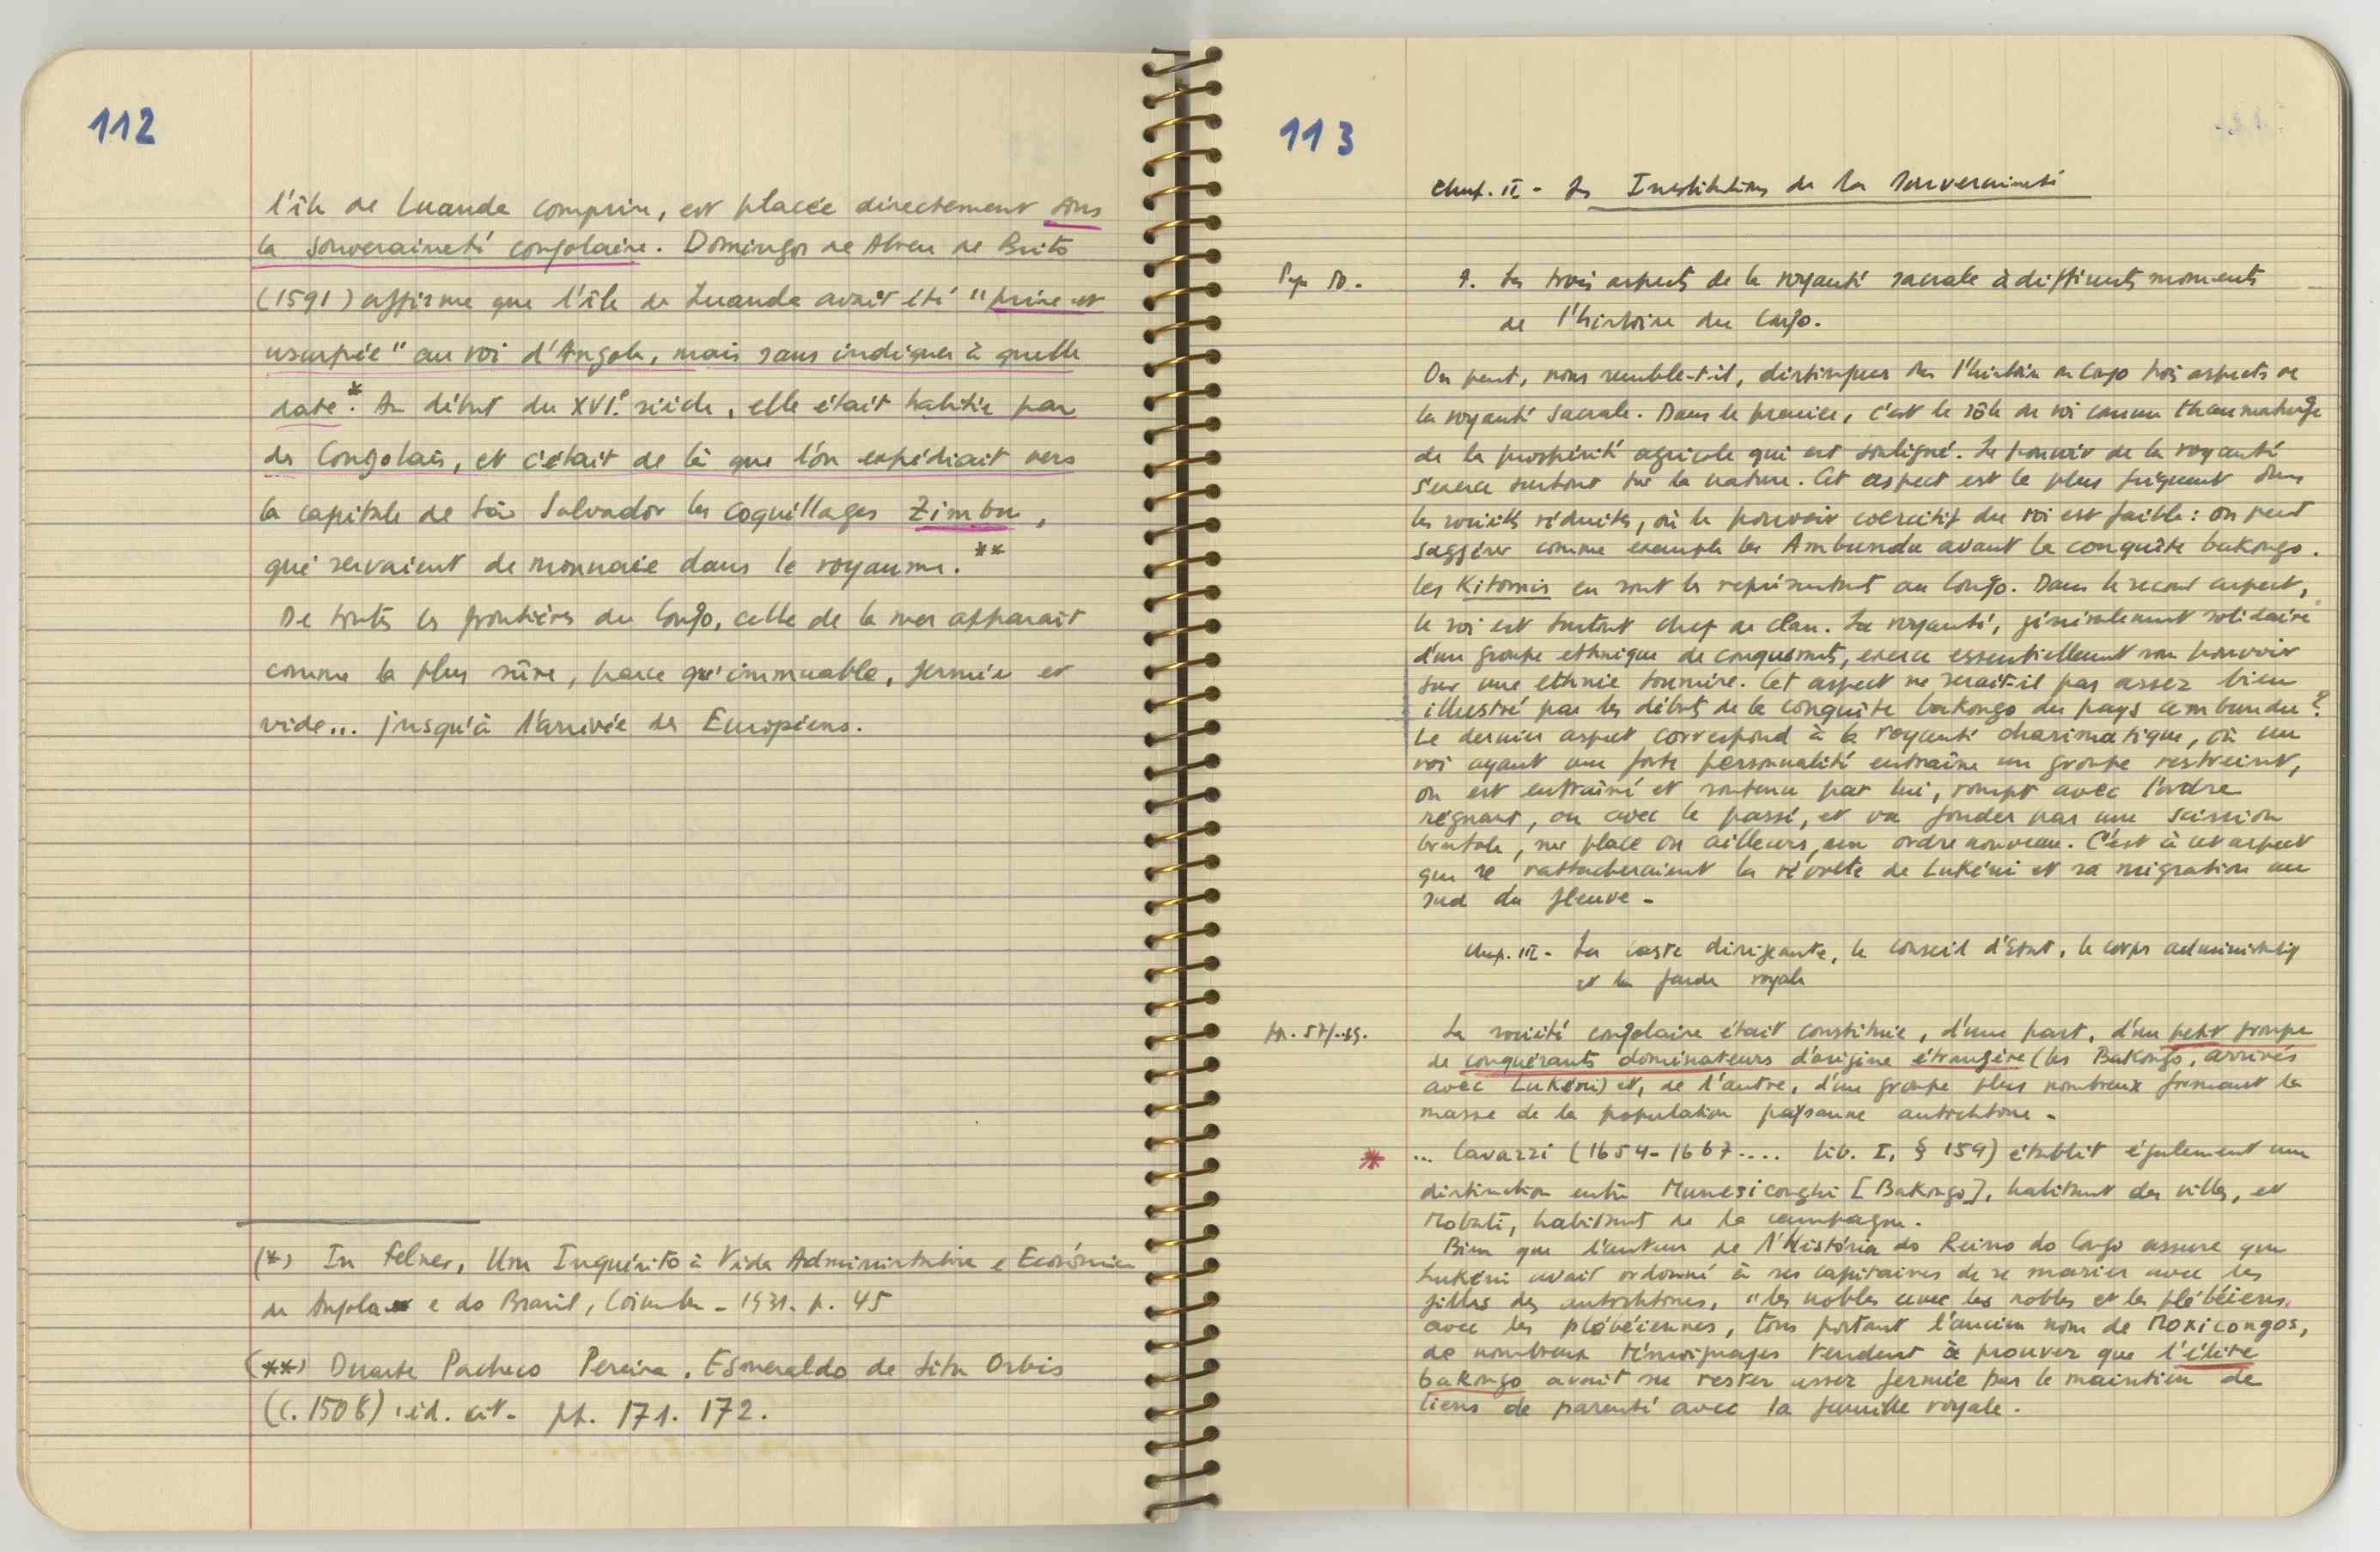 112
l'île de Luanda comprise, est placée directement sous
la souveraineté congolaise. Domingos de Abreu de Brito
(1591) affirme que l'île de Luanda avait été "prise et
usurpée" au roi d'Angola, mais sans indiquer à quelle
date*. Au début du XVIe siècle, elle était habitée par
des Congolais, et c'était de là que l'on expédiait vers
la capitale de São Salvador les coquillages Zimbu,
qui servaient de monnaie dans le royaume.**
De toutes les frontières du Congo, celle de la mer apparaît
comme la plus sûre, parce qu'immuable, fermée et
vide... jusqu'à l'arrivée des Européens.
(*) In Felner, Um Inquérito à Vida Administrativa e Económica
de Angola e do Brasil, Coimbra - 1931. p. 45
(**) Duarte Pacheco Pereira. Esmeraldo de Situ Orbis
(c. 1506) éd. cit. pp. 171. 172.
113
Chap. II - Les Institutions de la Souveraineté
1. Les trois aspects de la royauté sacrale à différents moments
de l'histoire du Congo.
On peut, nous semble-t-il, distinguer dans l'histoire du Congo trois aspects de
la royauté sacrale. Dans le premier, c'est le rôle du roi comme thaumaturge
de la prospérité agricole qui est souligné. Le pouvoir de la royauté
s'exerce surtout sur la nature. Cet aspect est le plus fréquent dans
les sociétés réduites, où le pouvoir coercitif du roi est faible: on peut
suggérer comme exemple les Ambundu avant la conquête bakongo.
Les Kitomis en sont les représentants au Congo. Dans le second aspect,
le roi est surtout chef de clan. La royauté, généralement solidaire
d'un groupe ethnique de conquérants, exerce essentiellement son pouvoir
sur une ethnie soumise. Cet aspect ne serait-il pas assez bien
illustré par les débuts de la conquête bakongo du pays ambundu?
Le dernier aspect correspond à la royauté charismatique, où un
roi ayant une forte personnalité entraîne un groupe restreint,
ou est entraîné et soutenu par lui, rompt avec l'ordre
régnant, ou avec le passé, et va fonder par une scission
brutale, sur place ou ailleurs, un ordre nouveau. C'est à cet aspect
que se rattacheraient la révolte de Lukéni et sa migration au
sud du fleuve -
Chap. III - La caste dirigeante, le conseil d'Etat, le corps administratif
et la garde royale
La société congolaise était constituée, d'une part, d'un petit groupe
de conquérants dominateurs d'origine étrangère (les Bakongo, arrivés
avec Lukéni) et, de l'autre, d'un groupe plus nombreux formant la
masse de la population paysanne autochtone -
* ... Cavazzi (1654-1667 .... liv. I, § 159) établit également une
distinction entre Munesiconghi [Bakongo], habitant des villes, et
Mobati, habitant de la campagne.
Bien que l'auteur de l'História do Reino do Congo assure que
Lukéni avait ordonné à ses capitaines de se marier avec les
filles des autochtones, "les nobles avec les nobles et les plébéiens
avec les plébéiennes, tous portant l'ancien nom de Moxicongos,
de nombreux témoignages tendent à prouver que l'élite
bakongo avait su rester assez fermée par le maintien de
liens de parenté avec la famille royale.